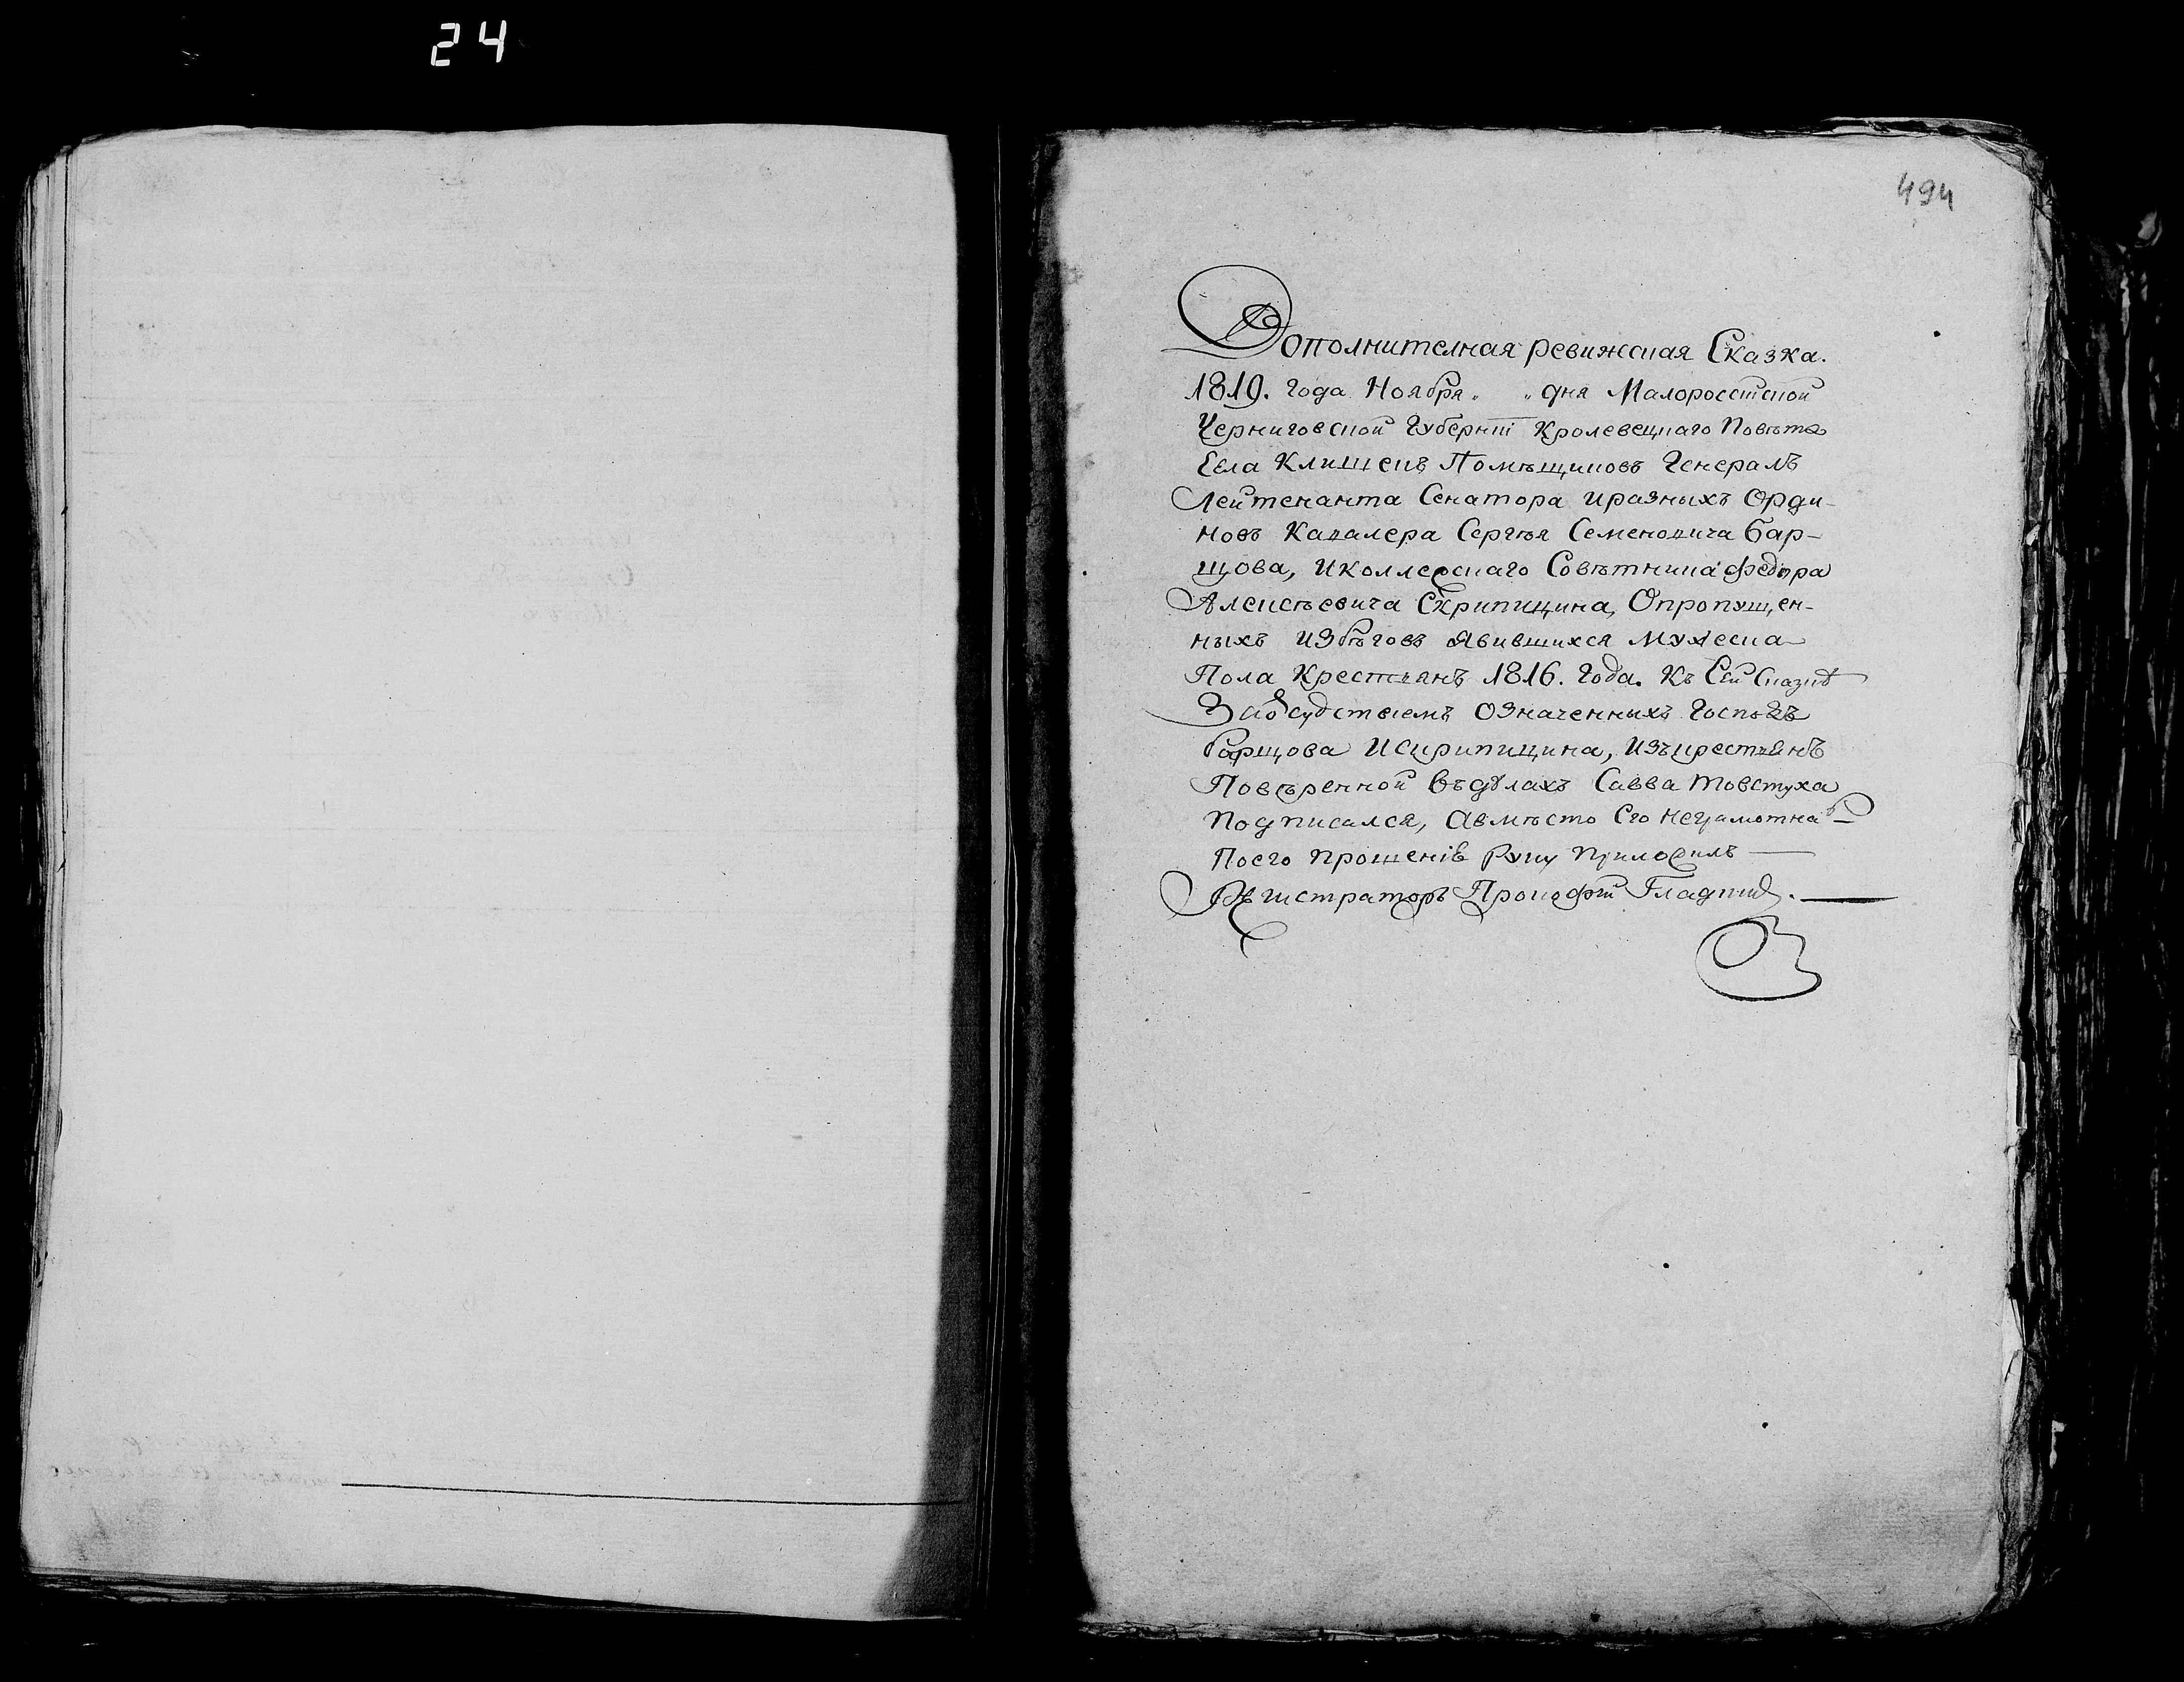 24
494
Дополнителная ревижская Сказка.
1819. года Ноября „ „ дня Малоросстской
Черниговской Губернїи Кролевецкаго Повѣта
Села Клишекъ Помѣщиковъ Генералъ
Лейтенанта Сенатора иразныхъ Орди-
новъ Кавалера Сергѣя Семеновича Бар-
щова, иколлежскаго Совѣтника Федора
Алексѣевича Скрипицина, Опропущен-
ныхъ избѣговъ Явившихся мужеска
Пола Крестьянъ 1816. года. Къ Сей Сказкѣ
означенныхъ Господъ
Барщова Искрипицина, изъкрестьянъ
Повѣренной въдѣлахъ Савва Товстуха
подписался, Авмѣсто Его неграмотна
Поего прошенію Руку приложилъ
Регистраторъ Прокофїй Гладкий.